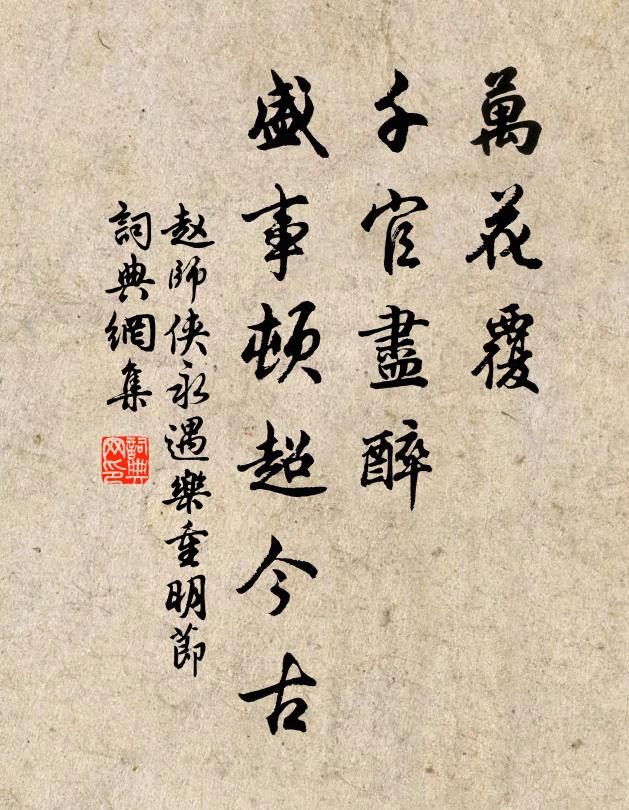 萬花覆
千官盡醉
盛事頓超今古
赵師俠永遇樂重明節
詞典網集
詞典
网印